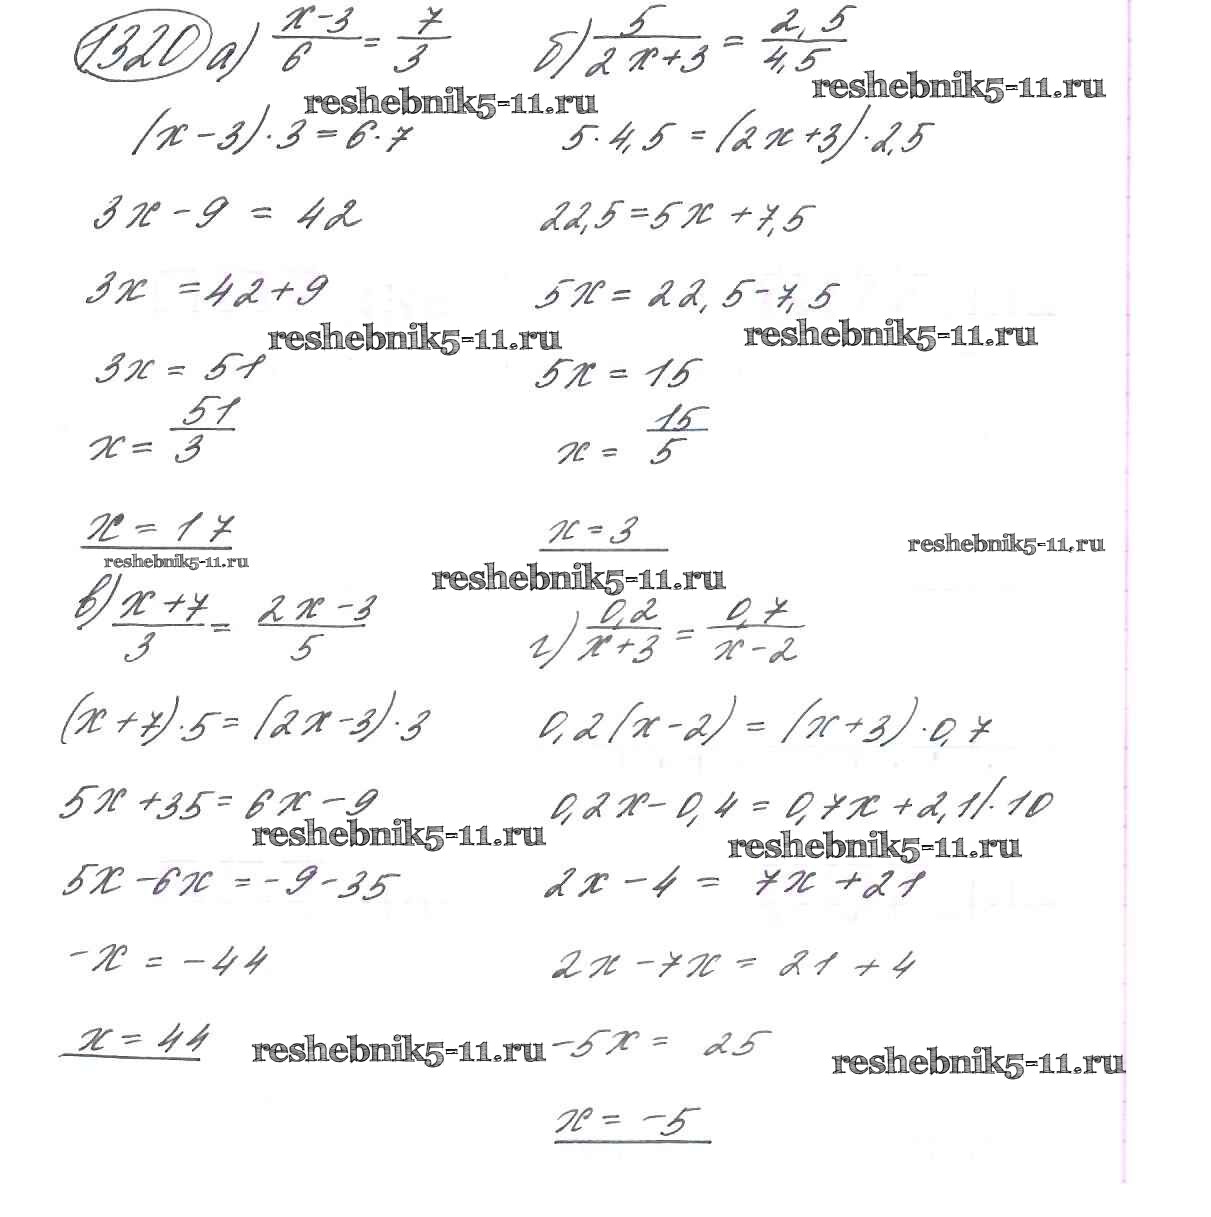 1320 а) (x-3)/6 = 7/3
(x-3)·3=6·7
3x-9 = 42
3x =42+9
3x = 51
x = 51/3
x = 17
б) 5/(2x+3) = 2,5/4,5
5·4,5 = (2x+3)·2,5
22,5=5x+7,5
5x = 22,5-7,5
5x = 15
x = 15/5
x = 3
в) (x+7)/3 = (2x-3)/5
(x+7)·5=(2x-3)·3
5x+35=6x-9
5x-6x=-9-35
-x = -44
x = 44
г) 0,2/(x+3) = 0,7/(x-2)
0,2(x-2) = (x+3)·0,7
0,2x-0,4=0,7x+2,1/·10
2x-4= 7x+21
2x-7x= 21+4
-5x= 25
x = -5
reshebnik5-11.ru
reshebnik5-11.ru
reshebnik5-11.ru
reshebnik5-11.ru
reshebnik5-11.ru
reshebnik5-11.ru
reshebnik5-11.ru
reshebnik5-11.ru
reshebnik5-11.ru
reshebnik5-11.ru
reshebnik5-11.ru